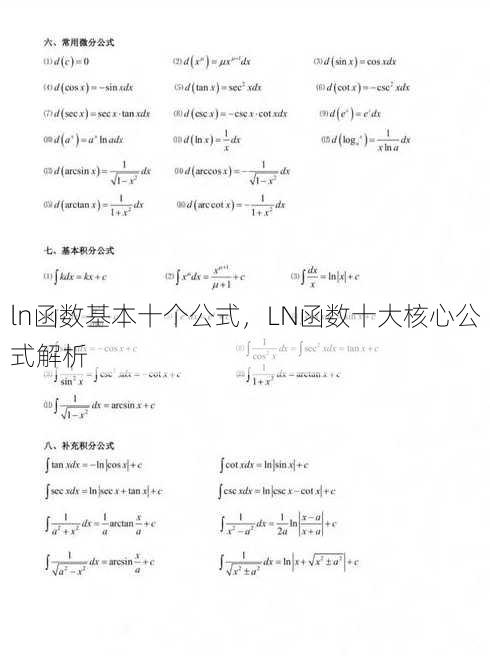 六、常用微分公式
⑴ d(c)=0 ⑵ d(x^μ)=μx^(μ-1)dx ⑶ d(sin x)=cos xdx
⑷ d(cos x)=-sin xdx ⑸ d(tan x)=sec² xdx ⑹ d(cot x)=-csc² xdx
⑺ d(sec x)=sec x·tan xdx ⑻ d(csc x)=-csc x·cot xdx ⑼ d(e^x)=e^x dx
⑽ d(a^x)=a^x ln adx ⑾ d(ln x)=1/x dx ⑿ d(log_a^x)=1/(x ln a) dx
⒀ d(arcsin x)=1/√(1-x²) dx ⒁ d(arccos x)=-1/√(1-x²) dx
⒂ d(arctan x)=1/(1+x²) dx ⒃ d(arc cot x)=-1/(1+x²) dx
七、基本积分公式
⑴ ∫kdx=kx+c ⑵ ∫x^μ dx=x^(μ+1)/(μ+1)+c ⑶ ∫dx/x=ln|x|+c
ln函数基本十个公式，LN函数十大核心公
式解析
=-cos x+c ⑻ ∫1/cos² x dx=∫sec² xdx=tan x+c
⑼ ∫1/sin² x=∫csc² xdx=-cot x+c ⑽ ∫1/(1+x²) dx=arctan x+c
⑾ ∫1/√(1-x²) dx=arcsin x+c
八、补充积分公式
∫tan xdx=-ln|cos x|+c ∫cot xdx=ln|sin x|+c
∫sec xdx=ln|sec x+tan x|+c ∫csc xdx=ln|csc x-cot x|+c
∫1/(a²+x²) dx=1/a arctan x/a+c ∫1/(x²-a²) dx=1/2a ln|(x-a)/(x+a)|+c
∫1/√(a²-x²) dx=arcsin x/a+c ∫1/√(x²±a²) dx=ln|x+√(x²±a²)|+c